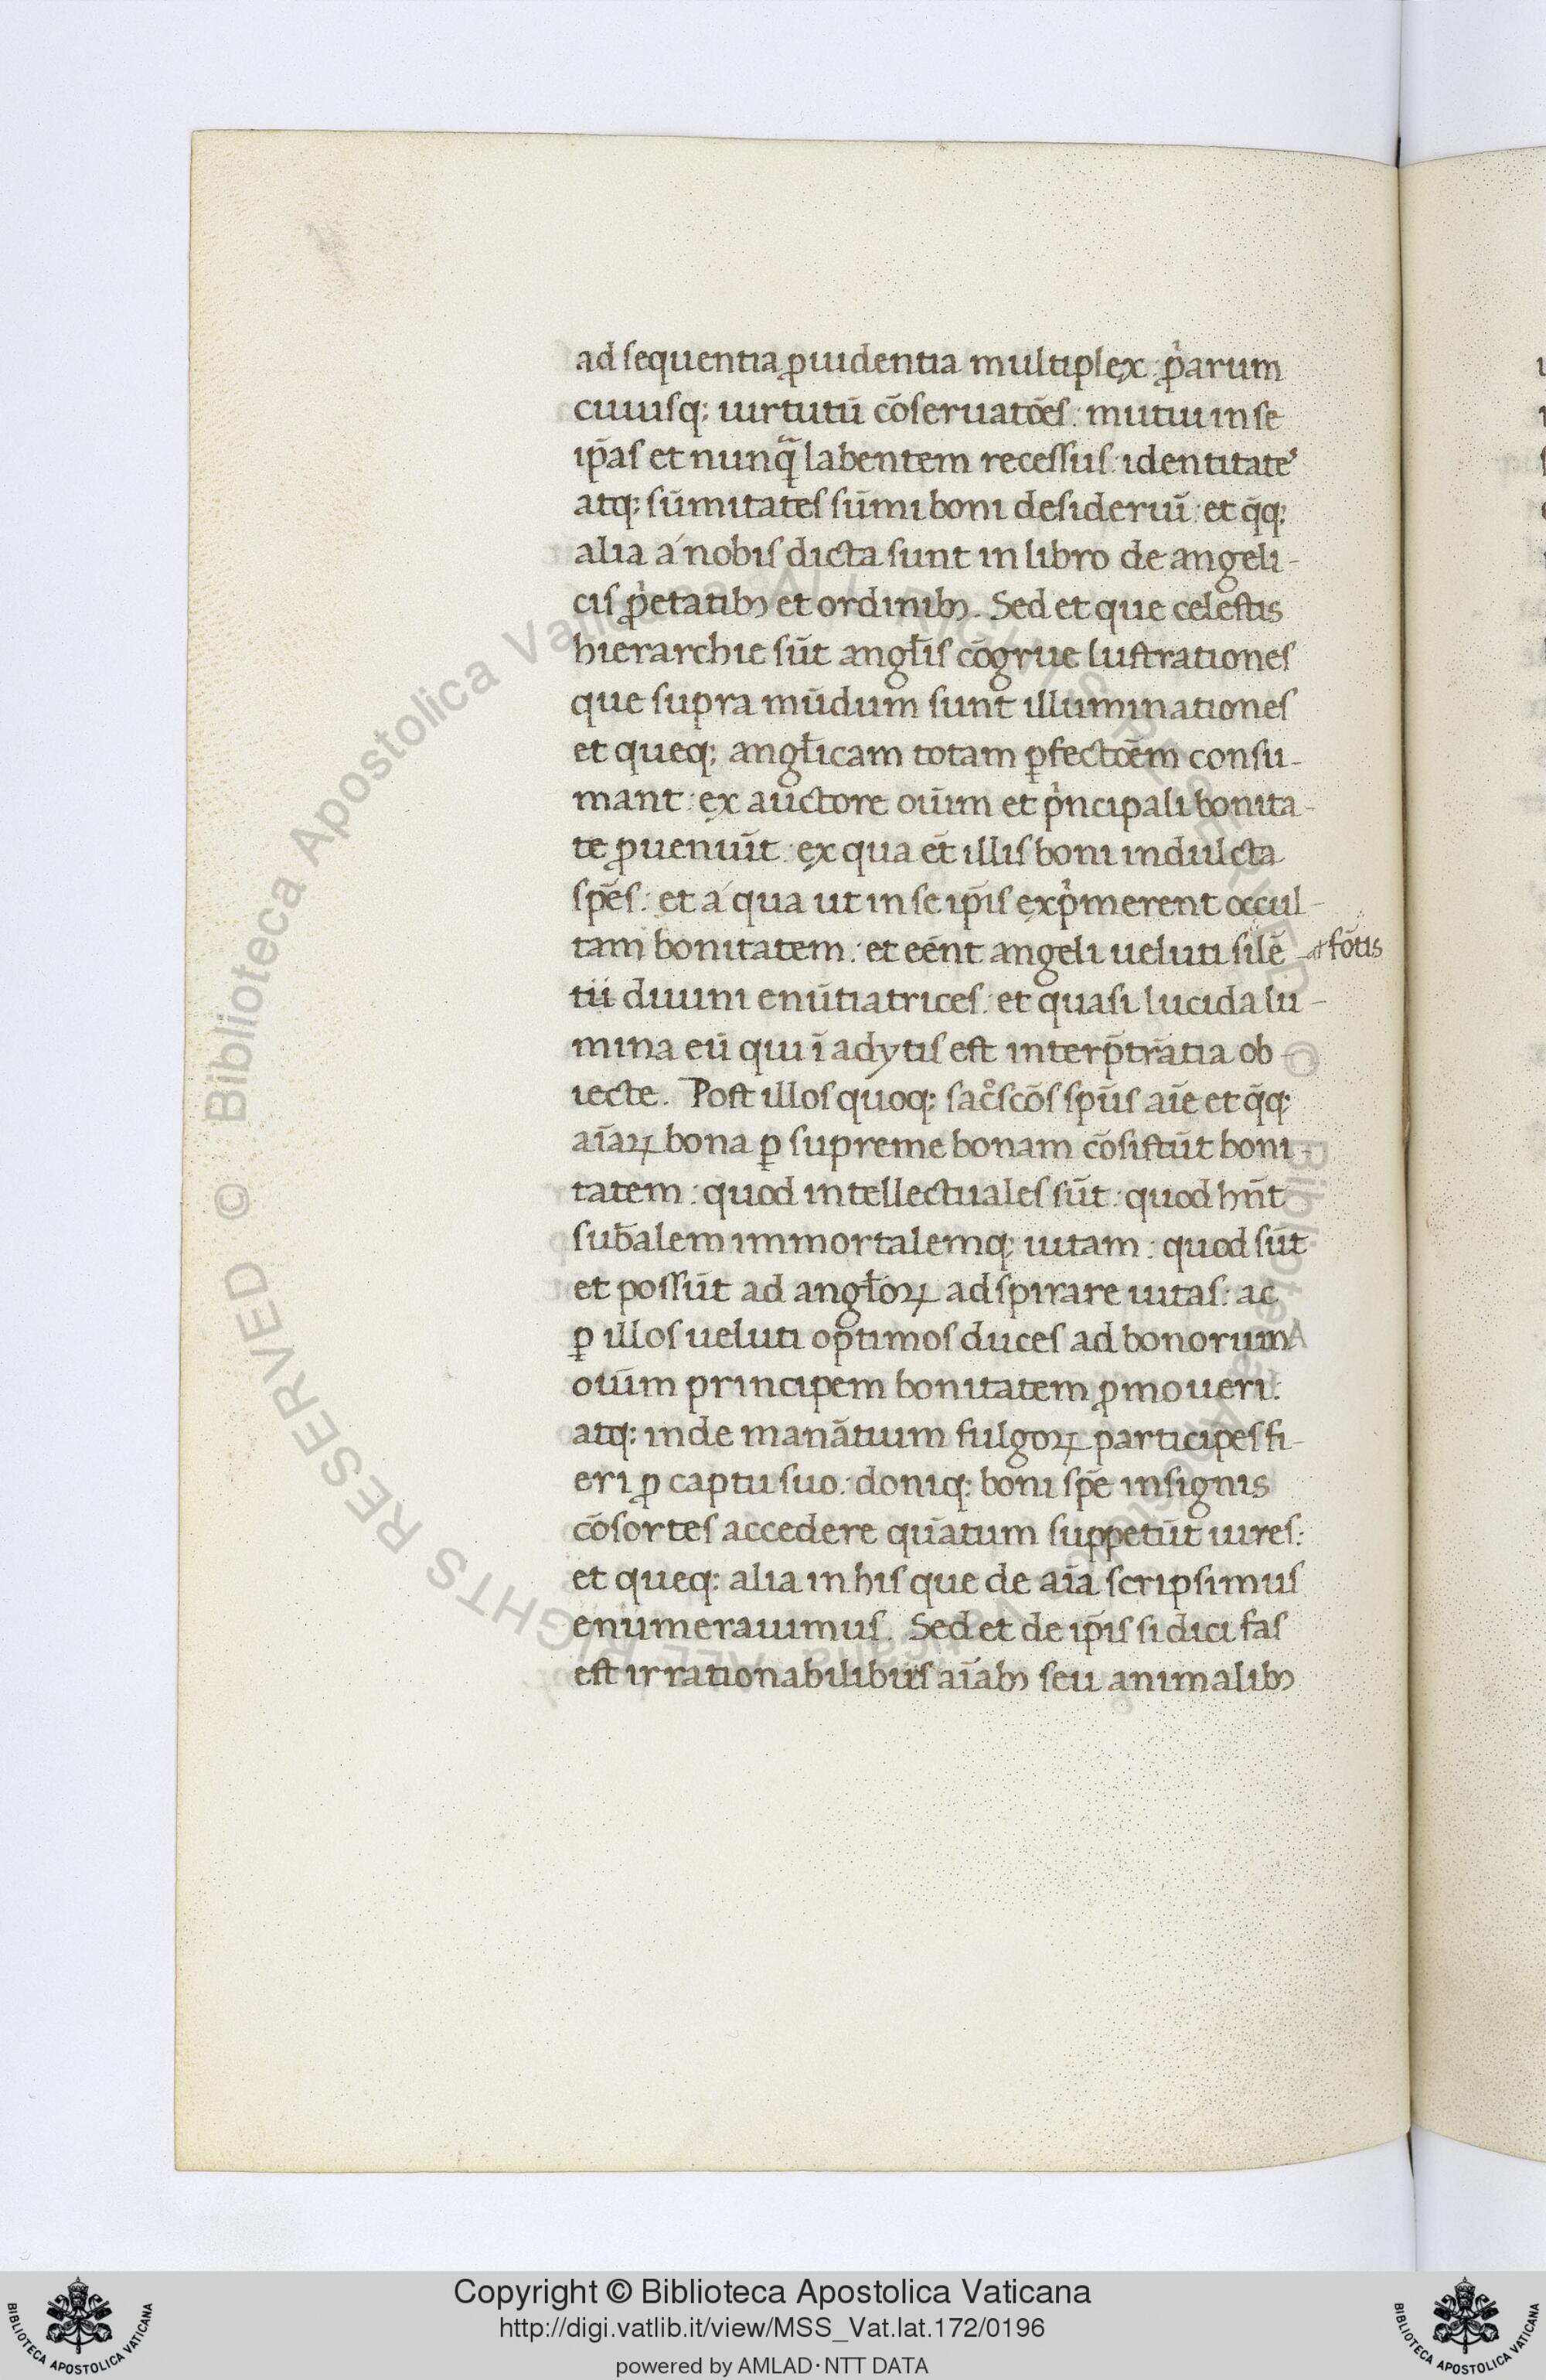 ad sequentia ꝓuidentia multiplex: ꝓp̓arum
cuiusq; uirtutū cōseruatōēs: mutui in se
ip̄as et nunq̄ labentem recessus: identitatē
atq; sūmitates sūmi boni desideriū: et q̄q;
alia á nobis dicta sunt in libro de angeli-
cis ꝓp̓etatibꝫ et ordinibꝫ. Sed et que celestis
hierarchie sūt angl̄is cōgrue lustrationes
que supra mūdum sunt illuminationes
et queq; angl̄icam totam ꝑfectōēm consu-
mant: ex auctore oīum et p̓ncipali bonita-
te ꝓueniūt: ex qua et̄ illis boni indulcta
spēs: et á qua ut in se ip̄is exp̓merent occul-
tam bonitatem: et eēnt angeli ueluti silē
fōtis
tii diuini enūtiatrices: et quasi lucida lu-
mina eū qui ī adytis est interp̄tratia ob-
iecte. Post illos quoq; sac̊scōs sp̄us aīe et q̄q;
aīaꝝ bona ꝑ supreme bonam cōsistūt boni-
tatem: quod intellectuales sūt: quod hn̄t
sub̄alem immortalemq; uitam: quod sūt
et possūt ad angl̄oꝝ adspirare uitas: ac
ꝑ illos ueluti optimos duces ad bonorum
oīum principem bonitatem ꝓmoueri:
atq; inde manātium fulgoꝝ participes fi-
eri ꝓ captu suo: doniq; boni spē insignis
cōsortes accedere quātum suppetūt uires:
et queq; alia in his que de aīa scripsimus
enumerauimus. Sed et de ip̄is si dici fas
est irrationabilibus aīabꝫ seu animalibꝫ
© Biblioteca Apostolica Vaticana ALL RIGHTS RESERVED
Copyright © Biblioteca Apostolica Vaticana
http://digi.vatlib.it/view/MSS_Vat.lat.172/0196
powered by AMLAD·NTT DATA
BIBLIOTECA APOSTOLICA VATICANA
BIBLIOTECA APOSTOLICA VATICANA